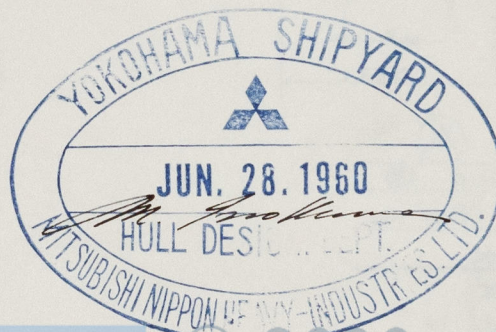 YOKOHAMA SHIPYARD
JUN. 28. 1960
HULL
MITSUBISHI NIPPON HEAVY-INDUSTRIES. LTD.